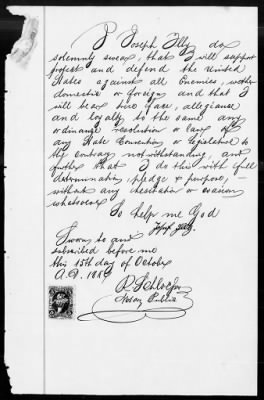 I Joseph Illy do
solemnly swear, that I will support
protect and defend the United
States against all Enemies, wether
domestic or foreign and that I
will bear true face, allegiance
and loyalty to the same any
ordinance resolution or law of
any State Convention or legislature to
the contrary notwithstanding, and
further that I do this with full
determination, pledge & purpose,
without any hesitation or evasion
whatsoever.
So help me God
Sworn to and
subscribed before me
this 15th day of October
A.D. 186
Notary Public